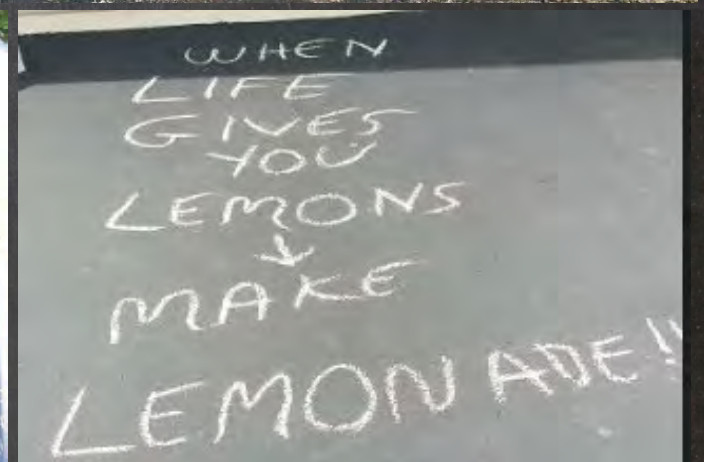 WHEN
LIFE
GIVES
YOU
LEMONS
↓
MAKE
LEMONADE!!